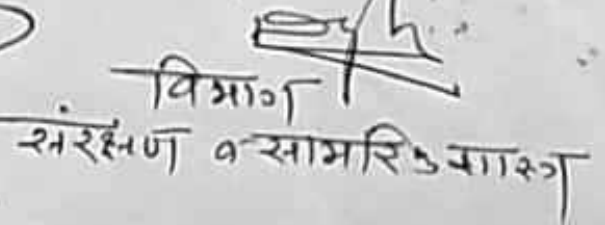 विभाग
संरक्षण व सामरिक शास्त्र